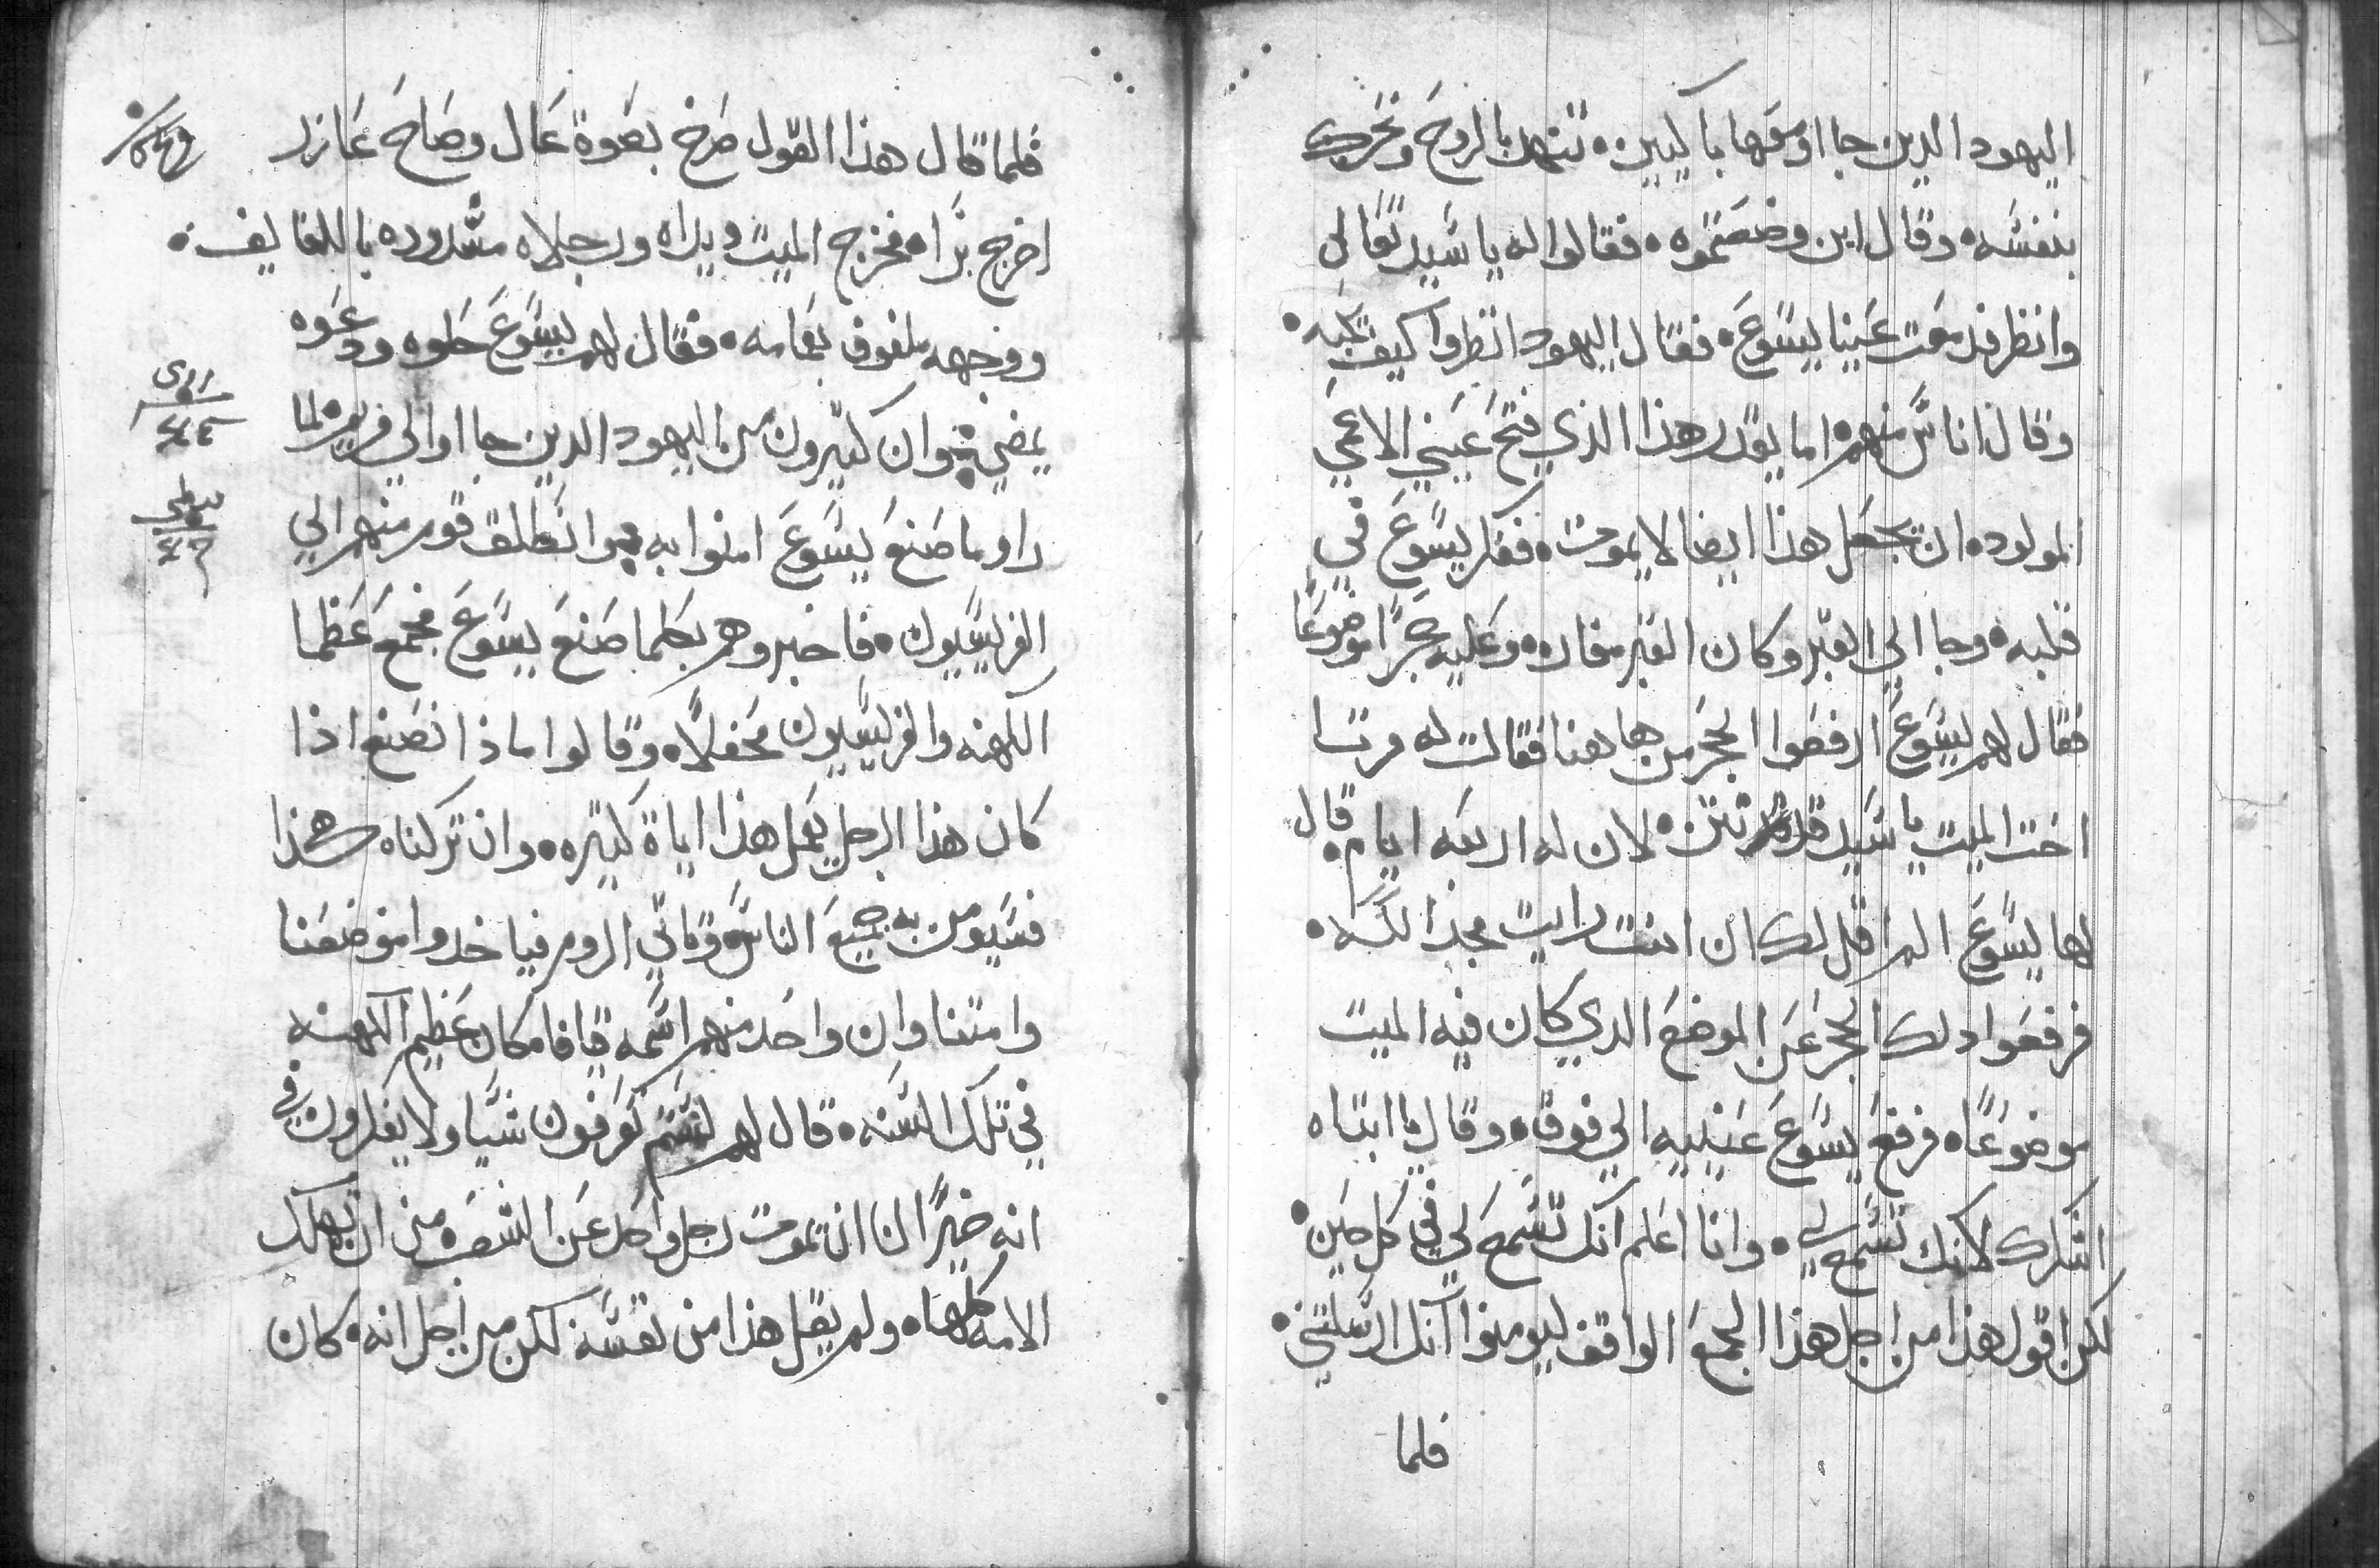 اليهود الدين جا او معها باكيين. تنهد بالروح وتحرك
بنفسه. وقال اين وضعتموه. فقالوا له يا سيد تعالي
وانظر فدمعت عينا يسوع. فقال اليهود انظروا كيف يحبه.
وقال اناس منهم. اما يقدر هذا الذي فتح عيني الاعمي
المولود. ان يجعل هذا ايضا لا يموت. ففكر يسوع في
قلبه. وجا الي القبر وكان القبر مغاره. وعليه حجرًا موضوعًا
فقال لهم يسوع ارفعوا الحجر من هاهنا فقالت له مرتا
اخت الميت يا سيد قد نتن. لان له اربعه ايام. قال
لها يسوع الم اقل لك ان امنت رايت مجد الله.
فرفعوا دلك الحجر عن الموضع الدي كان فيه الميت
موضوعًا. فرفع يسوع عينيه الي فوق. وقال يا ابتاه
اشكرك لانك تسمع لي. وانا اعلم انك تسمع لي في كل حين.
لكن اقول هذا من اجل هذا الجمع الواقف ليومنوا انك ارسلتني.
فلما
فلما قال هذا القول صرخ بصوة عال وصاح عازر
اخرج برا. فخرج الميت ويداه ورجلاه مشدوده باللفايف.
ووجهه ملفوف بعمامه. فقال لهم يسوع حلوه ودعوه
يمضي. وان كثيرون من اليهود الدين جا او الي مريم لما
راو ما صنع يسوع امنوا به وانطلق قوم منهم الي
الفريسيون. فاخبروهم بكلما صنع يسوع فجمع عظما
الكهنه والفريسيون محفلًا. وقالوا ماذا نصنع اذا
كان هذا الرجل يعمل هذا اياة كثيره. وان تركناه هكذا
فسيومن به جميع الناس وتاتي الروم فياخدوا موضعنا
وامتنا وان واحد منهم اسمه قيافا. كان عظيم الكهنه
في تلك السنه. قال لهم لستم تعرفون شيا ولا تفكرون في
انه خيرًا لنا ان يموت رجل واحد عن الشعب. من ان تهلك
الامه كلها. ولم يقل هذا من نفسه لكن من اجل انه. كان